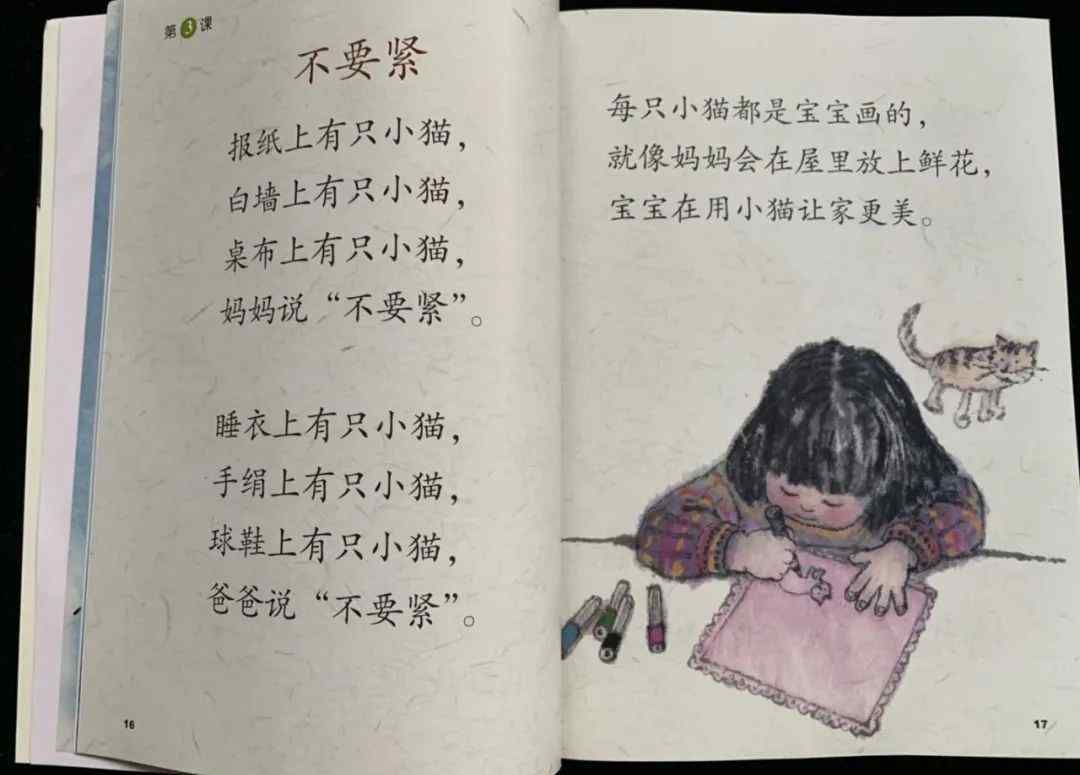 第3课
不要紧
报纸上有只小猫，
白墙上有只小猫，
桌布上有只小猫，
妈妈说“不要紧”。
睡衣上有只小猫，
手绢上有只小猫，
球鞋上有只小猫，
爸爸说“不要紧”。
16
每只小猫都是宝宝画的，
就像妈妈会在屋里放上鲜花，
宝宝在用小猫让家更美。
17